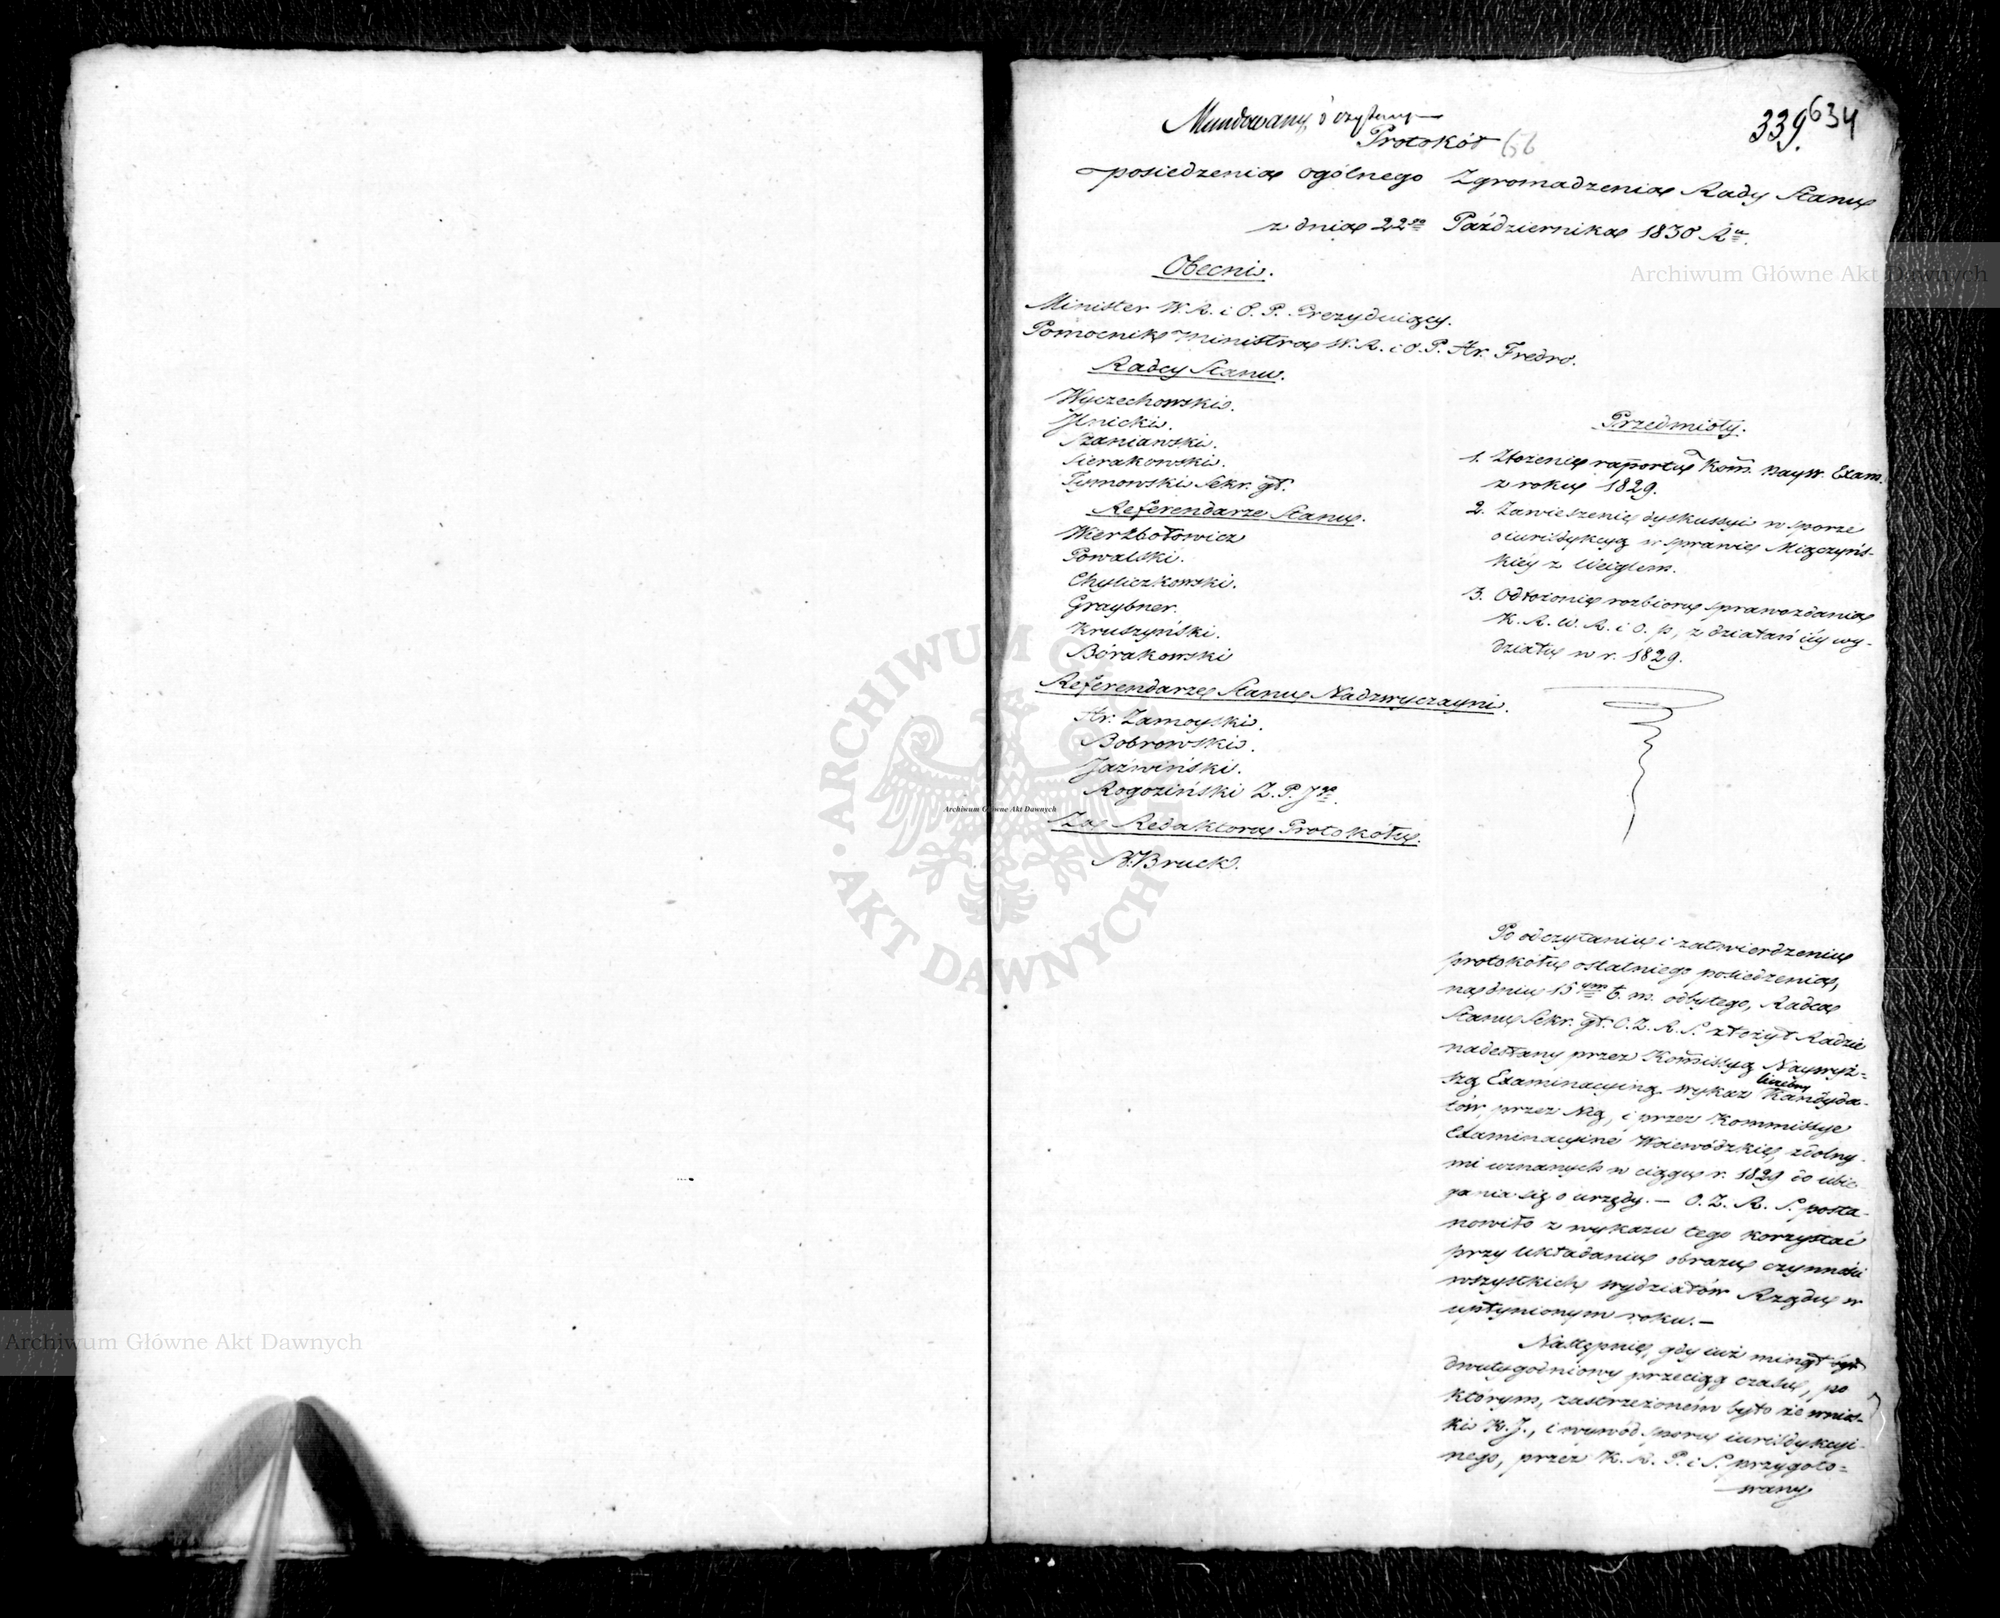 339. 634
Mundowany i czytany
Protokół 66
posiedzenia ogólnego Zgromadzenia Rady Stanu
z dnia 22go Października 1830 Ru.
Obecni.
Minister W. R. i O. P. Prezyduiący.
Pomocnik Ministra W. R. i O. P. Hr. Fredro.
Radcy Stanu.
Wyczechowski.
Jlnicki.
Szaniawski.
Sierakowski.
Tymowski Sekr. gł.
Referendarze Stanu.
Wierzbołowicz
Powalski.
Chyliczkowski.
Graybner.
Kruszyński.
Bórakowski
Referendarze Stanu Nadzwyczayni.
Hr. Zamoyski.
Bobrowski.
Jaźwiński.
Rogoziński Z. P. Jgo.
Za Redaktora Protokółu.
B. Bruck.
Przedmioty.
1. Złożenie rapportu Kom. nayw. Exam.
z roku 1829.
2. Zawieszenie dyskussyi w sporze
o iurisdykcyą w sprawie Miączyńs-
kiéy z Weiglem.
3. Odłożenie rozbioru sprawozdania
K. R. W. R. i O. P., z działań iéy wy-
działu w r. 1829.
Po odczytaniu i zatwierdzeniu
protokółu ostatniego posiedzenia,
na dniu 15tym b. m. odbytego, Radca
Stanu Sekr. gł. O. Z. R. S. złożył Radzie
nadesłany przez Komissyą Naywyż-
szą Examinacyiną wykaz liczebny Kandyda-
tów, przez Nią, i przez Kommissye
Examinacyine Woiewódzkie, zdolny-
mi uznanych w ciągu r. 1829 do ubie-
gania się o urzędy. — O. Z. R. S. posta-
nowiło z wykazu tego korzystać
przy układaniu obrazu czynności
wszystkich wydziałów Rządu w
upłynionym roku. —
Następnie, gdy iuż minął
dwutygodniowy przeciąg czasu, po
którym, zastrzeżoném było że wnios-
ki K. J., i wywód sporu iurisdykcyi-
nego, przez K. R. P. i S. przygoto=
wany
Archiwum Główne Akt Dawnych
Archiwum Główne Akt Dawnych
Archiwum Główne Akt Dawnych
ARCHIWUM GŁÓWNE AKT DAWNYCH